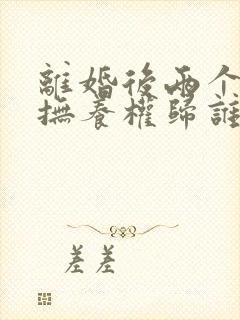 離婚後兩个
撫養權歸誰
差差